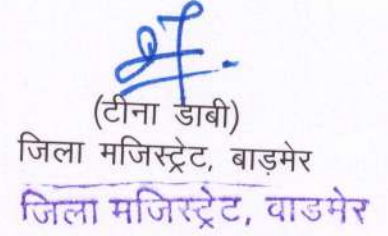 (टीना डाबी)
जिला मजिस्ट्रेट, बाड़मेर
जिला मजिस्ट्रेट, वाडमेर